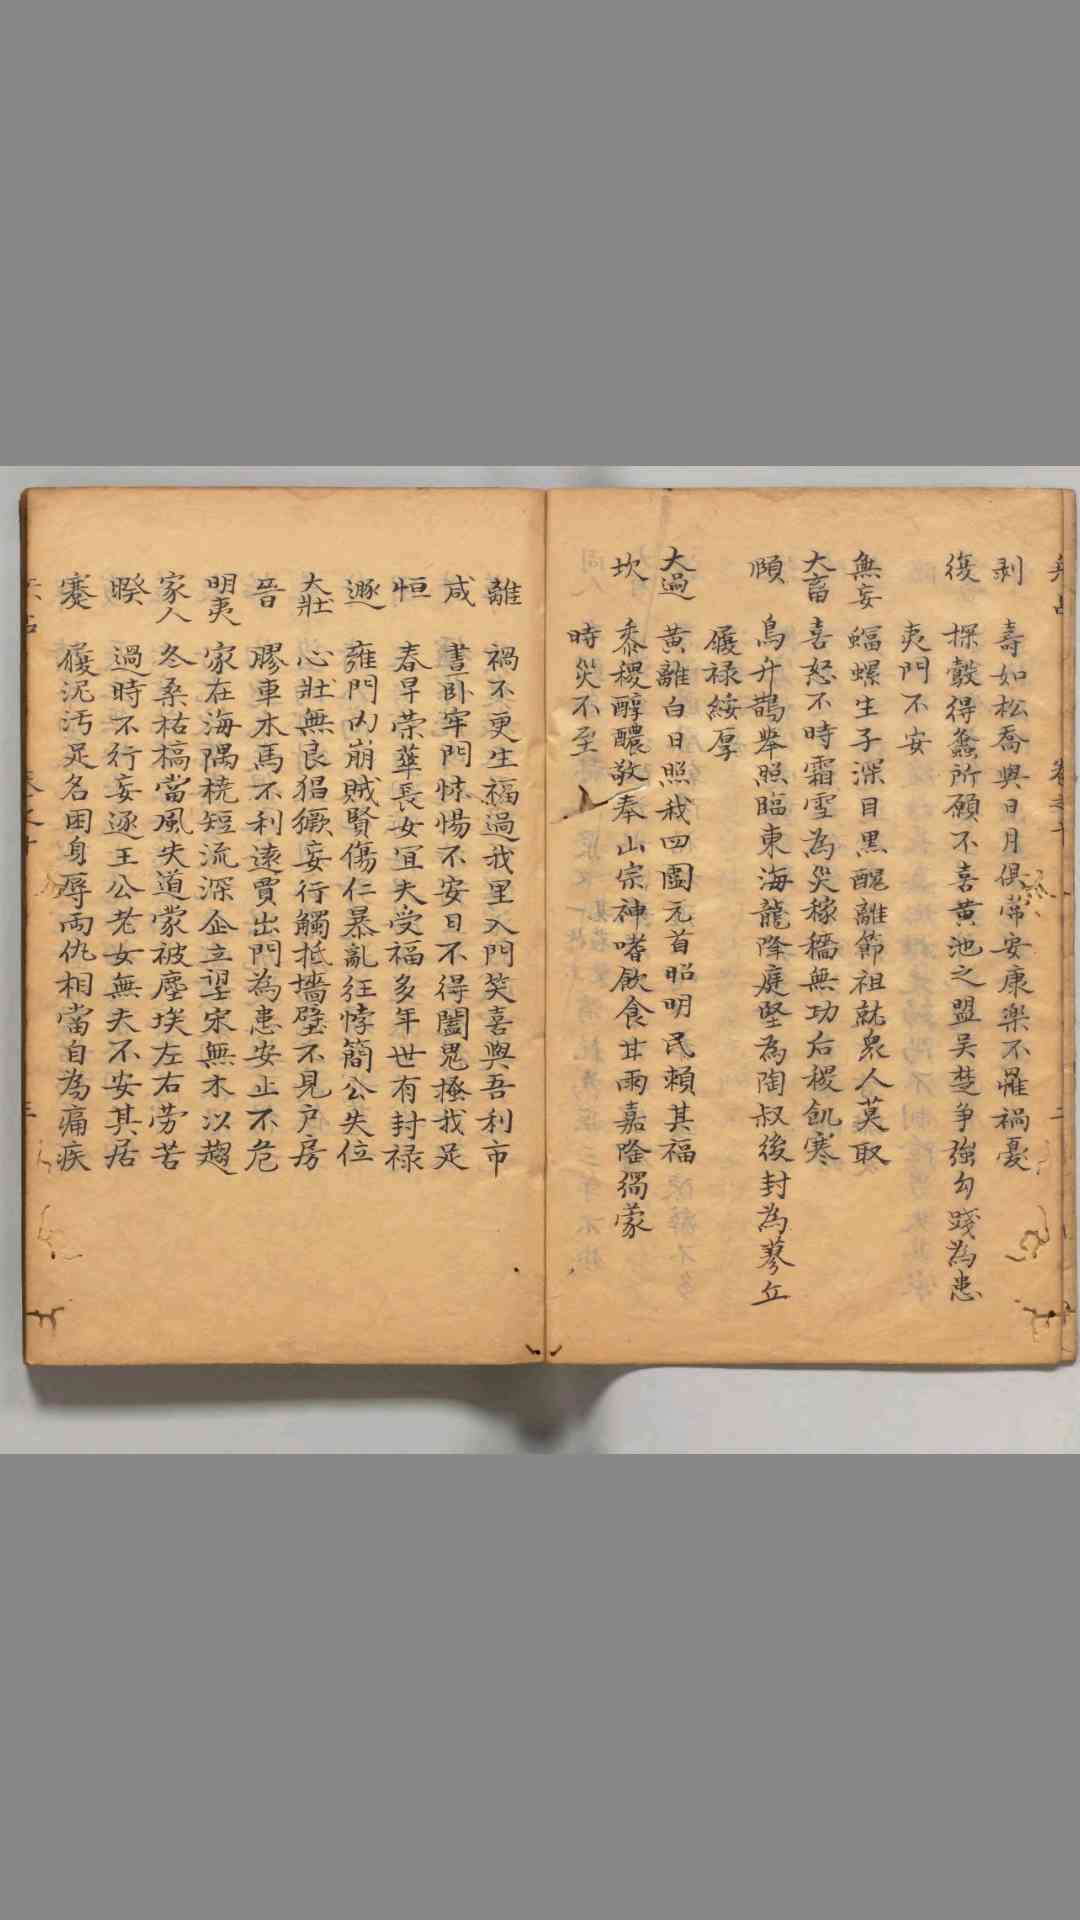 剥　壽如松喬與日月俱常安康樂不罹禍憂
復　探鷇得螽所願不喜黃池之盟吳楚爭強勾踐為患
夷門不安
無妄　蝠螺生子深目黒醜離節祖就衆人莫取
大畜　喜怒不時霜雪為災稼穡無功后稷飢寒
頤　鳥升鵲舉照臨東海龍降庭堅為陶叔後封為蓼丘
履禄綏厚
大過　黃離白日照我四國元首昭明民賴其福
坎　黍稷醇醲敬奉山宗神嗜飲食甘雨嘉降獨蒙
時災不至
離　禍不更生福過我里入門笑喜與吾利市
咸　晝卧牢門悚惕不安目不得闔鬼搔我足
恒　春早荣華長女冝夫受福多年世有封禄
遯　雍門內崩賊賢傷仁暴亂狂悖簡公失位
大壯　心壯無良猖獗妄行觸抵墻壁不見户房
晉　膠車木馬不利遠賈出門為患安止不危
明夷　家在海隅橈短流深企立望宋無木以趨
家人　冬桑枯槁當風失道蒙被塵埃左右劳苦
暌　過時不行妄逐王公老女無夫不安其居
蹇　履泥汚足名困身辱兩仇相當自為痛疾